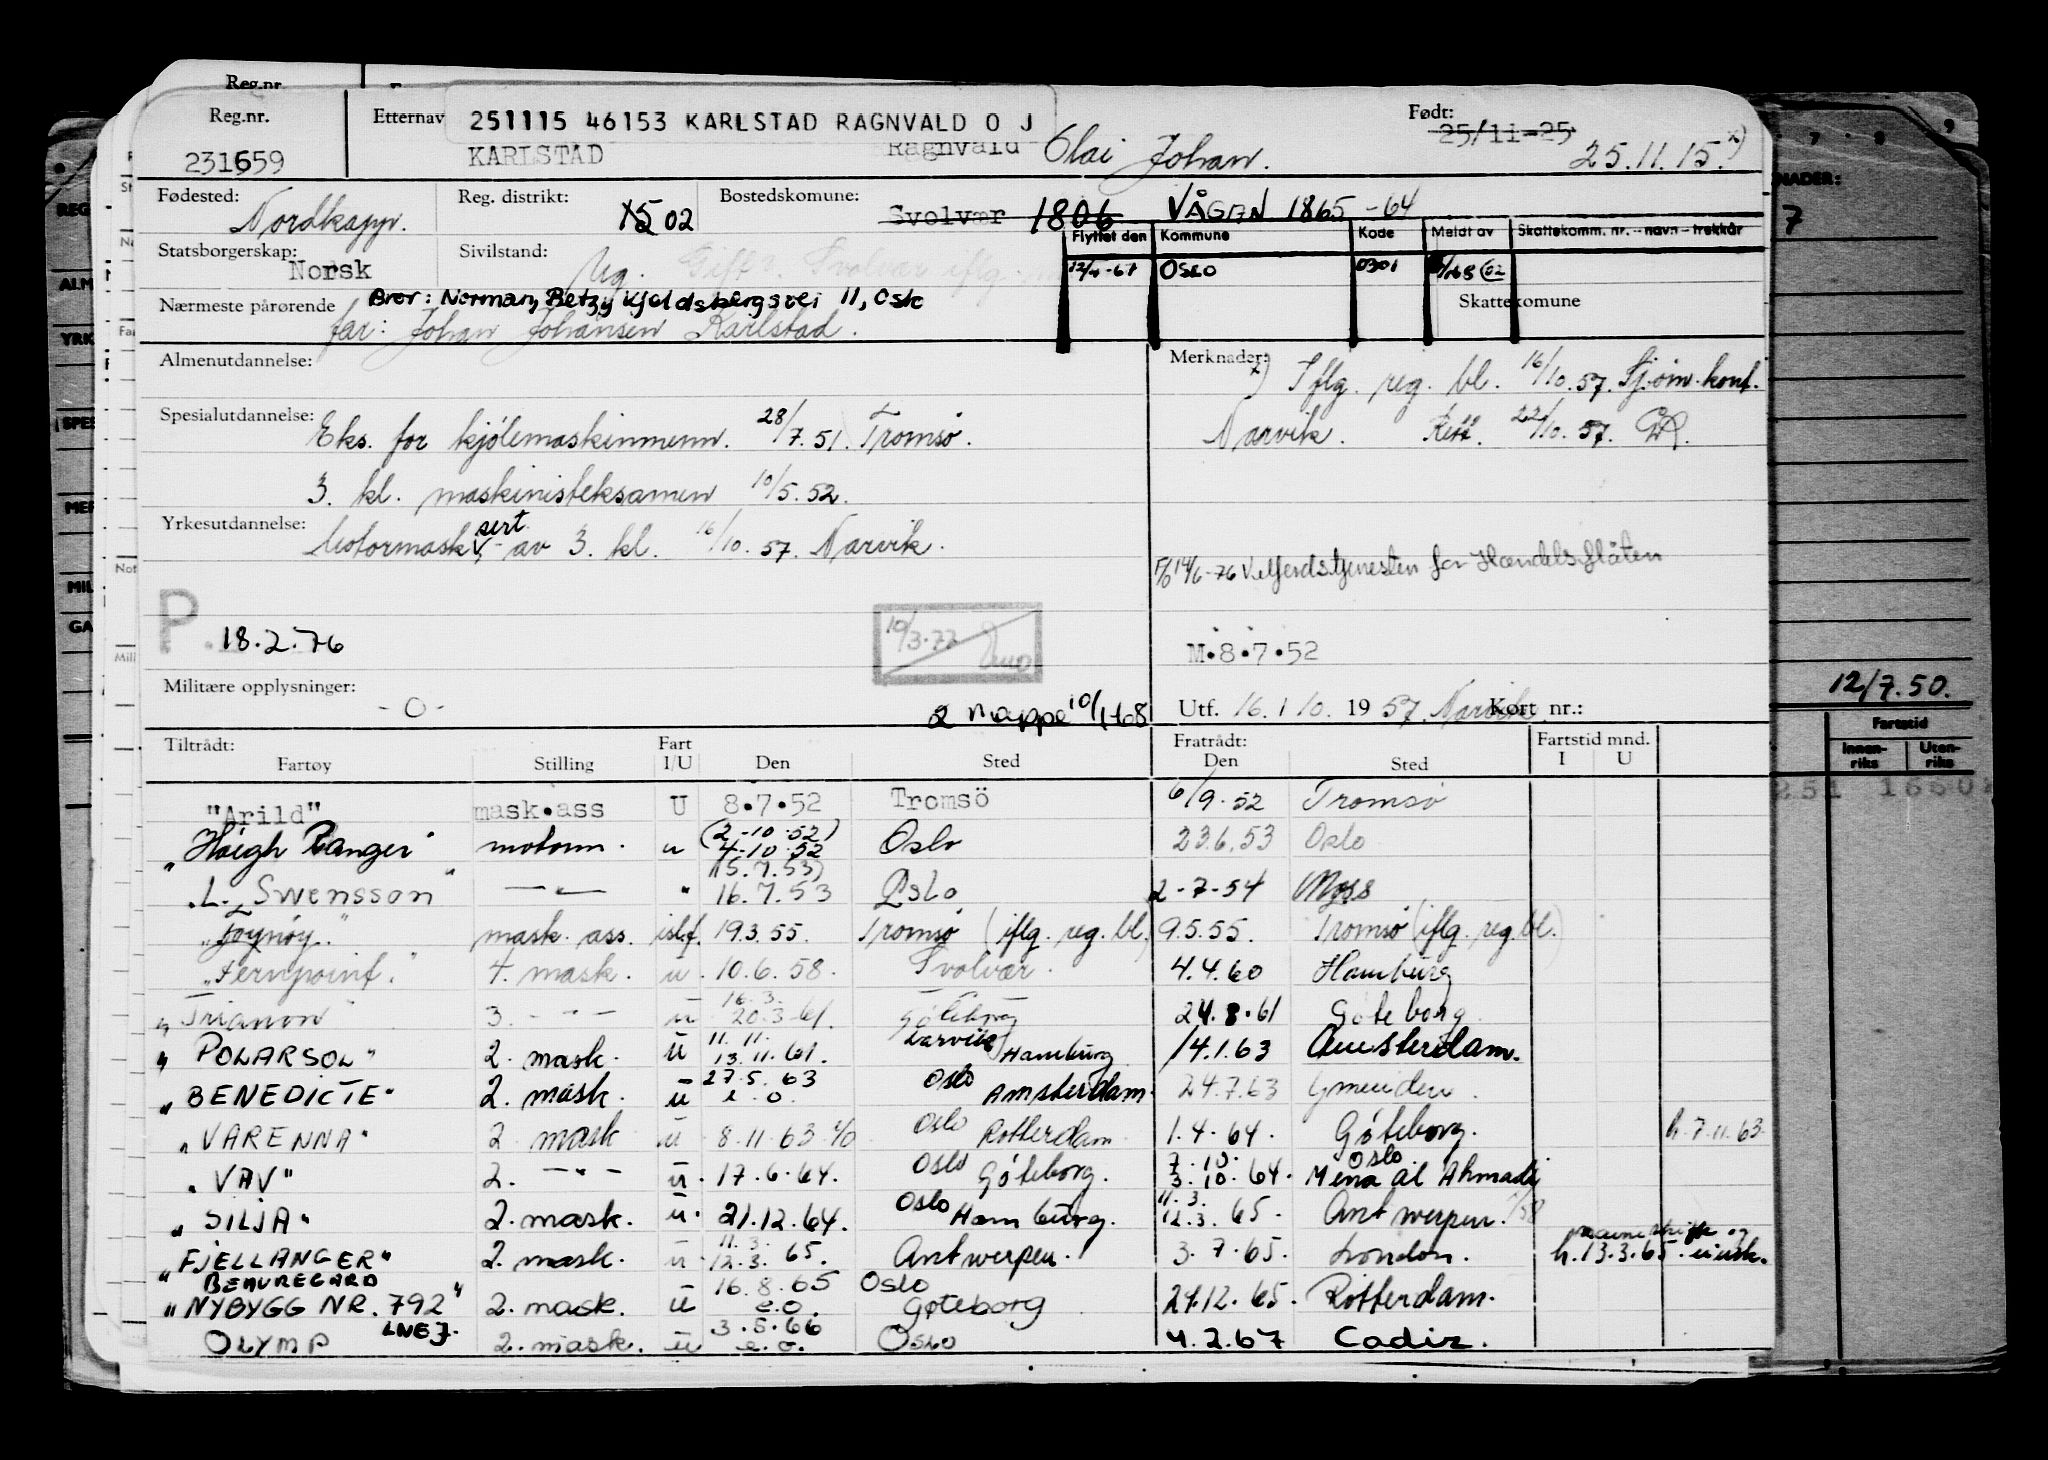 Reg.nr.
Reg.nr. Etternav 251115 46153 KARLSTAD RAGNVALD O J Født:
231659 KARLSTAD Ragnvald Olai Johan. 25/11-25 25.11.15. x)
Fødested: Nordkapp. Reg. distrikt: 1502 Bostedskomune: Svolvær 1806 VÅGAN 1865 -64
Flyttet den Kommune Kode Meldt av Skattekomm. nr. - navn - trekkår
Statsborgerskap: Norsk Sivilstand: Ug. Gift Svolvær iflg.
12/4-67 OSLO 0301 02
Skattekomune
Nærmeste pårørende Bror: Norman, Betzy Kjeldsbergsvei 11, Oslo
far: Johan Johansen Karlstad.
Almenutdannelse:
Merknader: x) Iflg. reg. bl. 16/10.57. Sjøm. kont.
Narvik. Rett. 22/10.57. GR.
Spesialutdannelse: Eks. for kjølemaskinmenn. 28/7.51. Tromsø.
3. kl. maskinisteksamen 10/5.52.
Yrkesutdannelse: Motormask. sert. av 3. kl. 16/10.57. Narvik.
14/6-76 Velferdstjenesten for Handelsflåten
P. 18.2.76
10/3.77
M.8.7.52
Militære opplysninger: -0-
2 mappe 10/1-68
Utf. 16. / 10. 1957. Narvik Kort nr.:
12/7.50.
Tiltrådt: Fartøy Stilling Fart I/U Den Sted Fratrådt: Den Sted Fartstid mnd. I U
Fartstid Innenriks Utenriks
"Arild" mask.ass U 8.7.52 Tromsö 6/9.52 Tromsø
"Høegh Ranger" motorm. u (2-10.52) 4-10.52 Oslo 23.6.53 Oslo
"L. Swensson" —"— " (15.7.53) 16.7.53 Oslo 2-7-54 Moss
mask. ass. ish.f. 19.3.55. Tromsø (iflg. reg. bl.) 9.5.55. Tromsø (iflg. reg. bl.)
"Fernpoint." 4. mask. u. 10.6.58. Svolvær. 4.4.60 Hamburg
"Trianon" 3. -"- u 16.3. 20.3-61. Göteborg 24.8.61 Göteborg
"POLARSOL" 2. mask. u 11.11. 13.11.61. Larvik/Hamburg 14.1.63 Amsterdam.
"BENEDICTE" 2. mask. u 27.5.63 e.o. Oslo Amsterdam. 24.7.63 Ymuiden.
"VARENNA" 2. mask u 8.11.63 e/o Oslo Rotterdam 1.4.64. Göteborg. h. 7.11.63.
"VAV" 2. -"- u. 17.6.64. Oslo Göteborg. 7.10. 3.10.64. Oslo Mena al Ahmadi
"SILJA" 2. mask. u. 21.12.64. Oslo Hamburg. 11.3. 12.3.65. Antwerpen.
"FJELLANGER" 2. mask. u 11.3. 12.3.65. Antwerpen. 3.7.65. London. h. 13.3.65.
BEAUREGARD
"NYBYGG NR. 792" 2. mask. u 16.8.65 e.o. Oslo Göteborg 24.12.65. Rotterdam.
OLYMP LNEJ. 2. mask. u 3.5.66 e.o. Oslo 4.2.67 Cadiz.